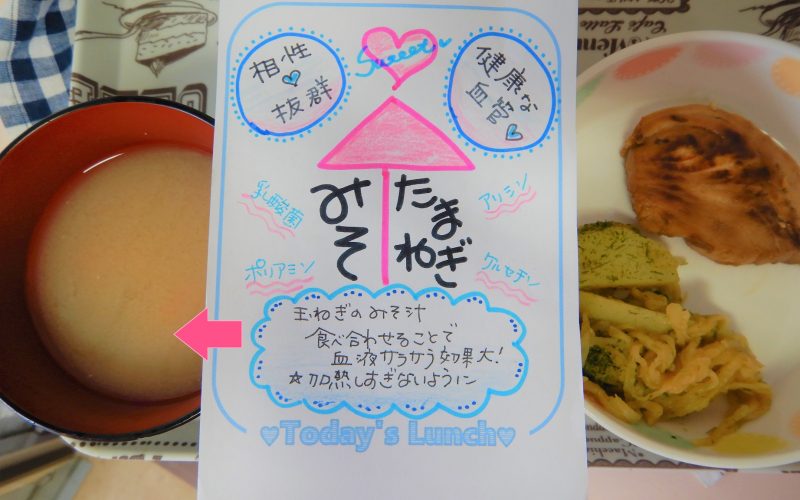 Sweet
相性
抜群
健康な
血管
たまねぎ
みそ
乳酸菌
アリシン
ポリアミン
ケルセチン
玉ねぎのみそ汁
食べ合わせることで
血液サラサラ効果大!
☆加熱しすぎないように
♥Today's Lunch♥
Menu
Café Latte